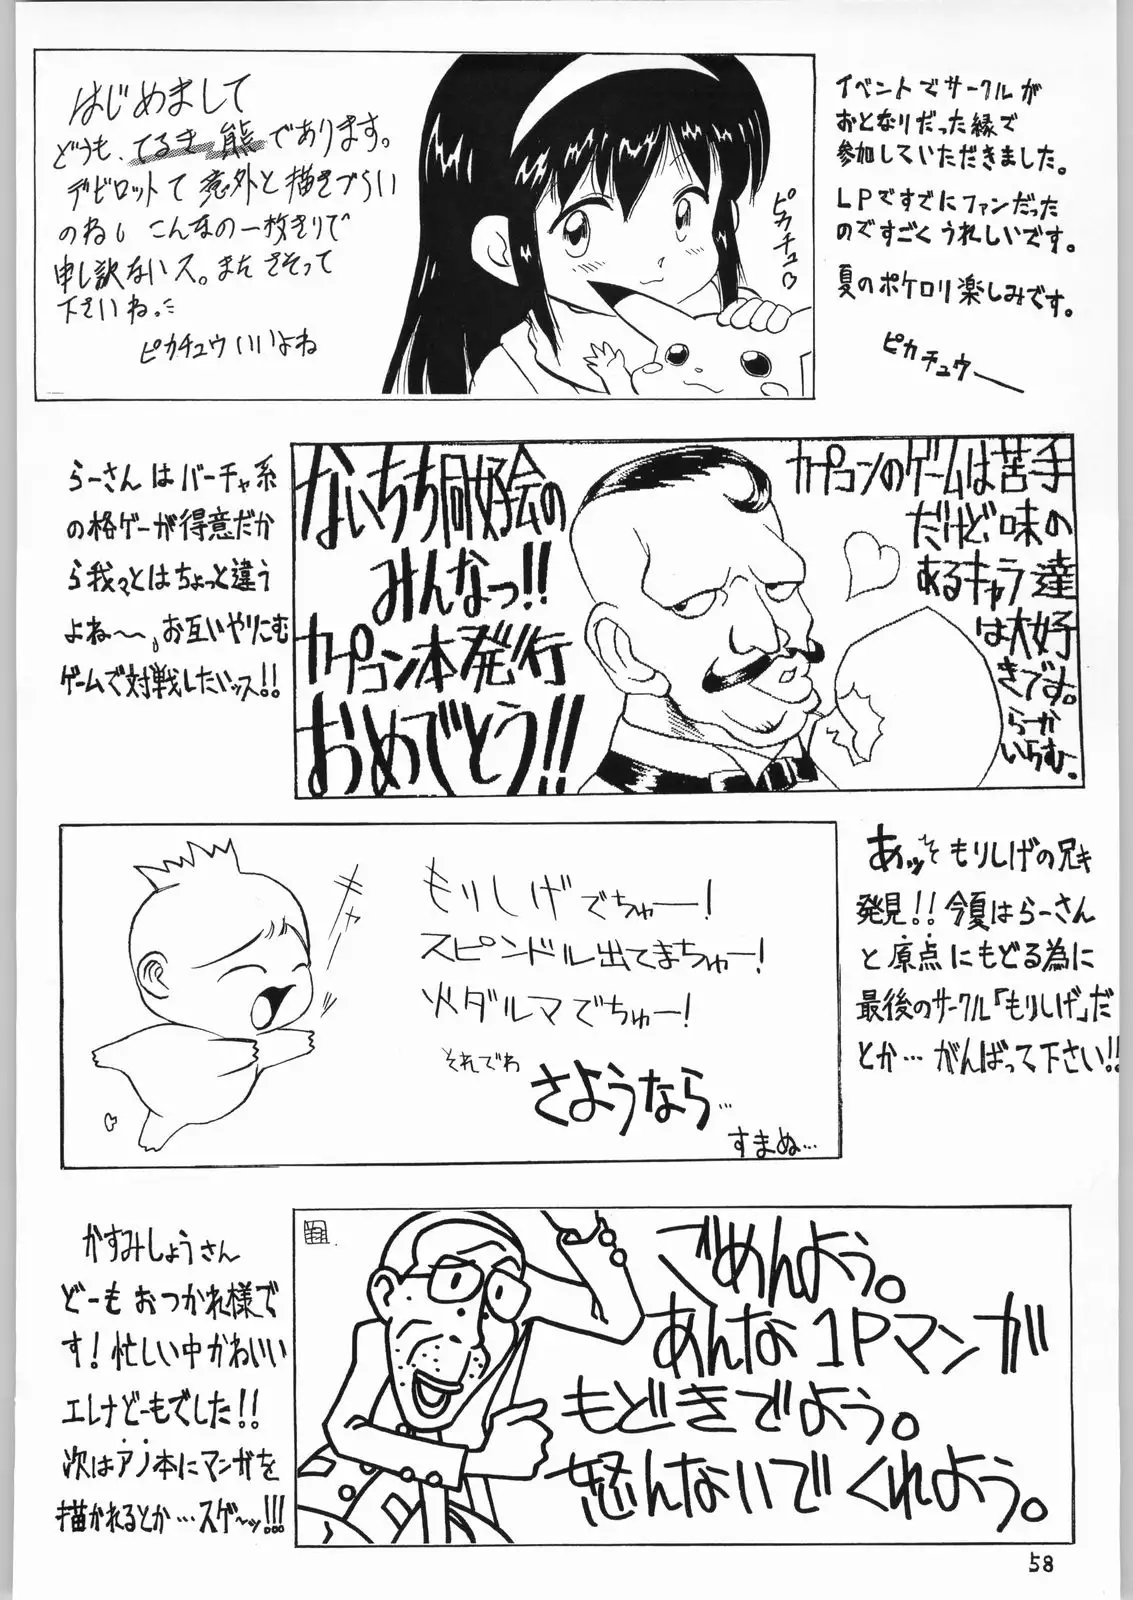 はじめまして
どうも、てるき熊であります。
デビロットて意外と描きづらい
のねし こんなの一枚きりで
申し訳ないス。またさそって
下さいね。
ピカチュウいいよね
ピカチュウ
イベントでサークルが
おとなりだった縁で
参加していただきました。
LPですでにファンだった
のですごくうれしいです。
夏のポケロリ楽しみです。
ピカチュウー
らーさんはバーチャ系
の格ゲーが得意だか
ら我々とはちょっと違う
よね〜〜。お互いやりこむ
ゲームで対戦したいッス!!
ないちち同好会の
みんなっ!!
カプコン本発行
おめでとう!!
カプコンのゲームは苦手
だけど、味の
あるキャラ達
は大好
きです。
らーか
いらむ。
もりしげでちゅー!
スピンドル出てまちゅー!
火ダルマでちゅー!
それでわ
さようなら…
すまぬ…
キャー
あッそもりしげの兄き
発見!! 今夏はらーさん
と原点にもどる為に
最後のサークル「もりしげ」だ
とか… がんばって下さい!!
かすみしょうさん
どーもおつかれ様で
す! 忙しい中かわいい
エレナどーもでした!!
次はアノ本にマンガを
描かれるとか…スゲ〜ッ!!!
ごめんよう。
あんな1Pマンガ
もどきでよう。
怒んないでくれよう。
58